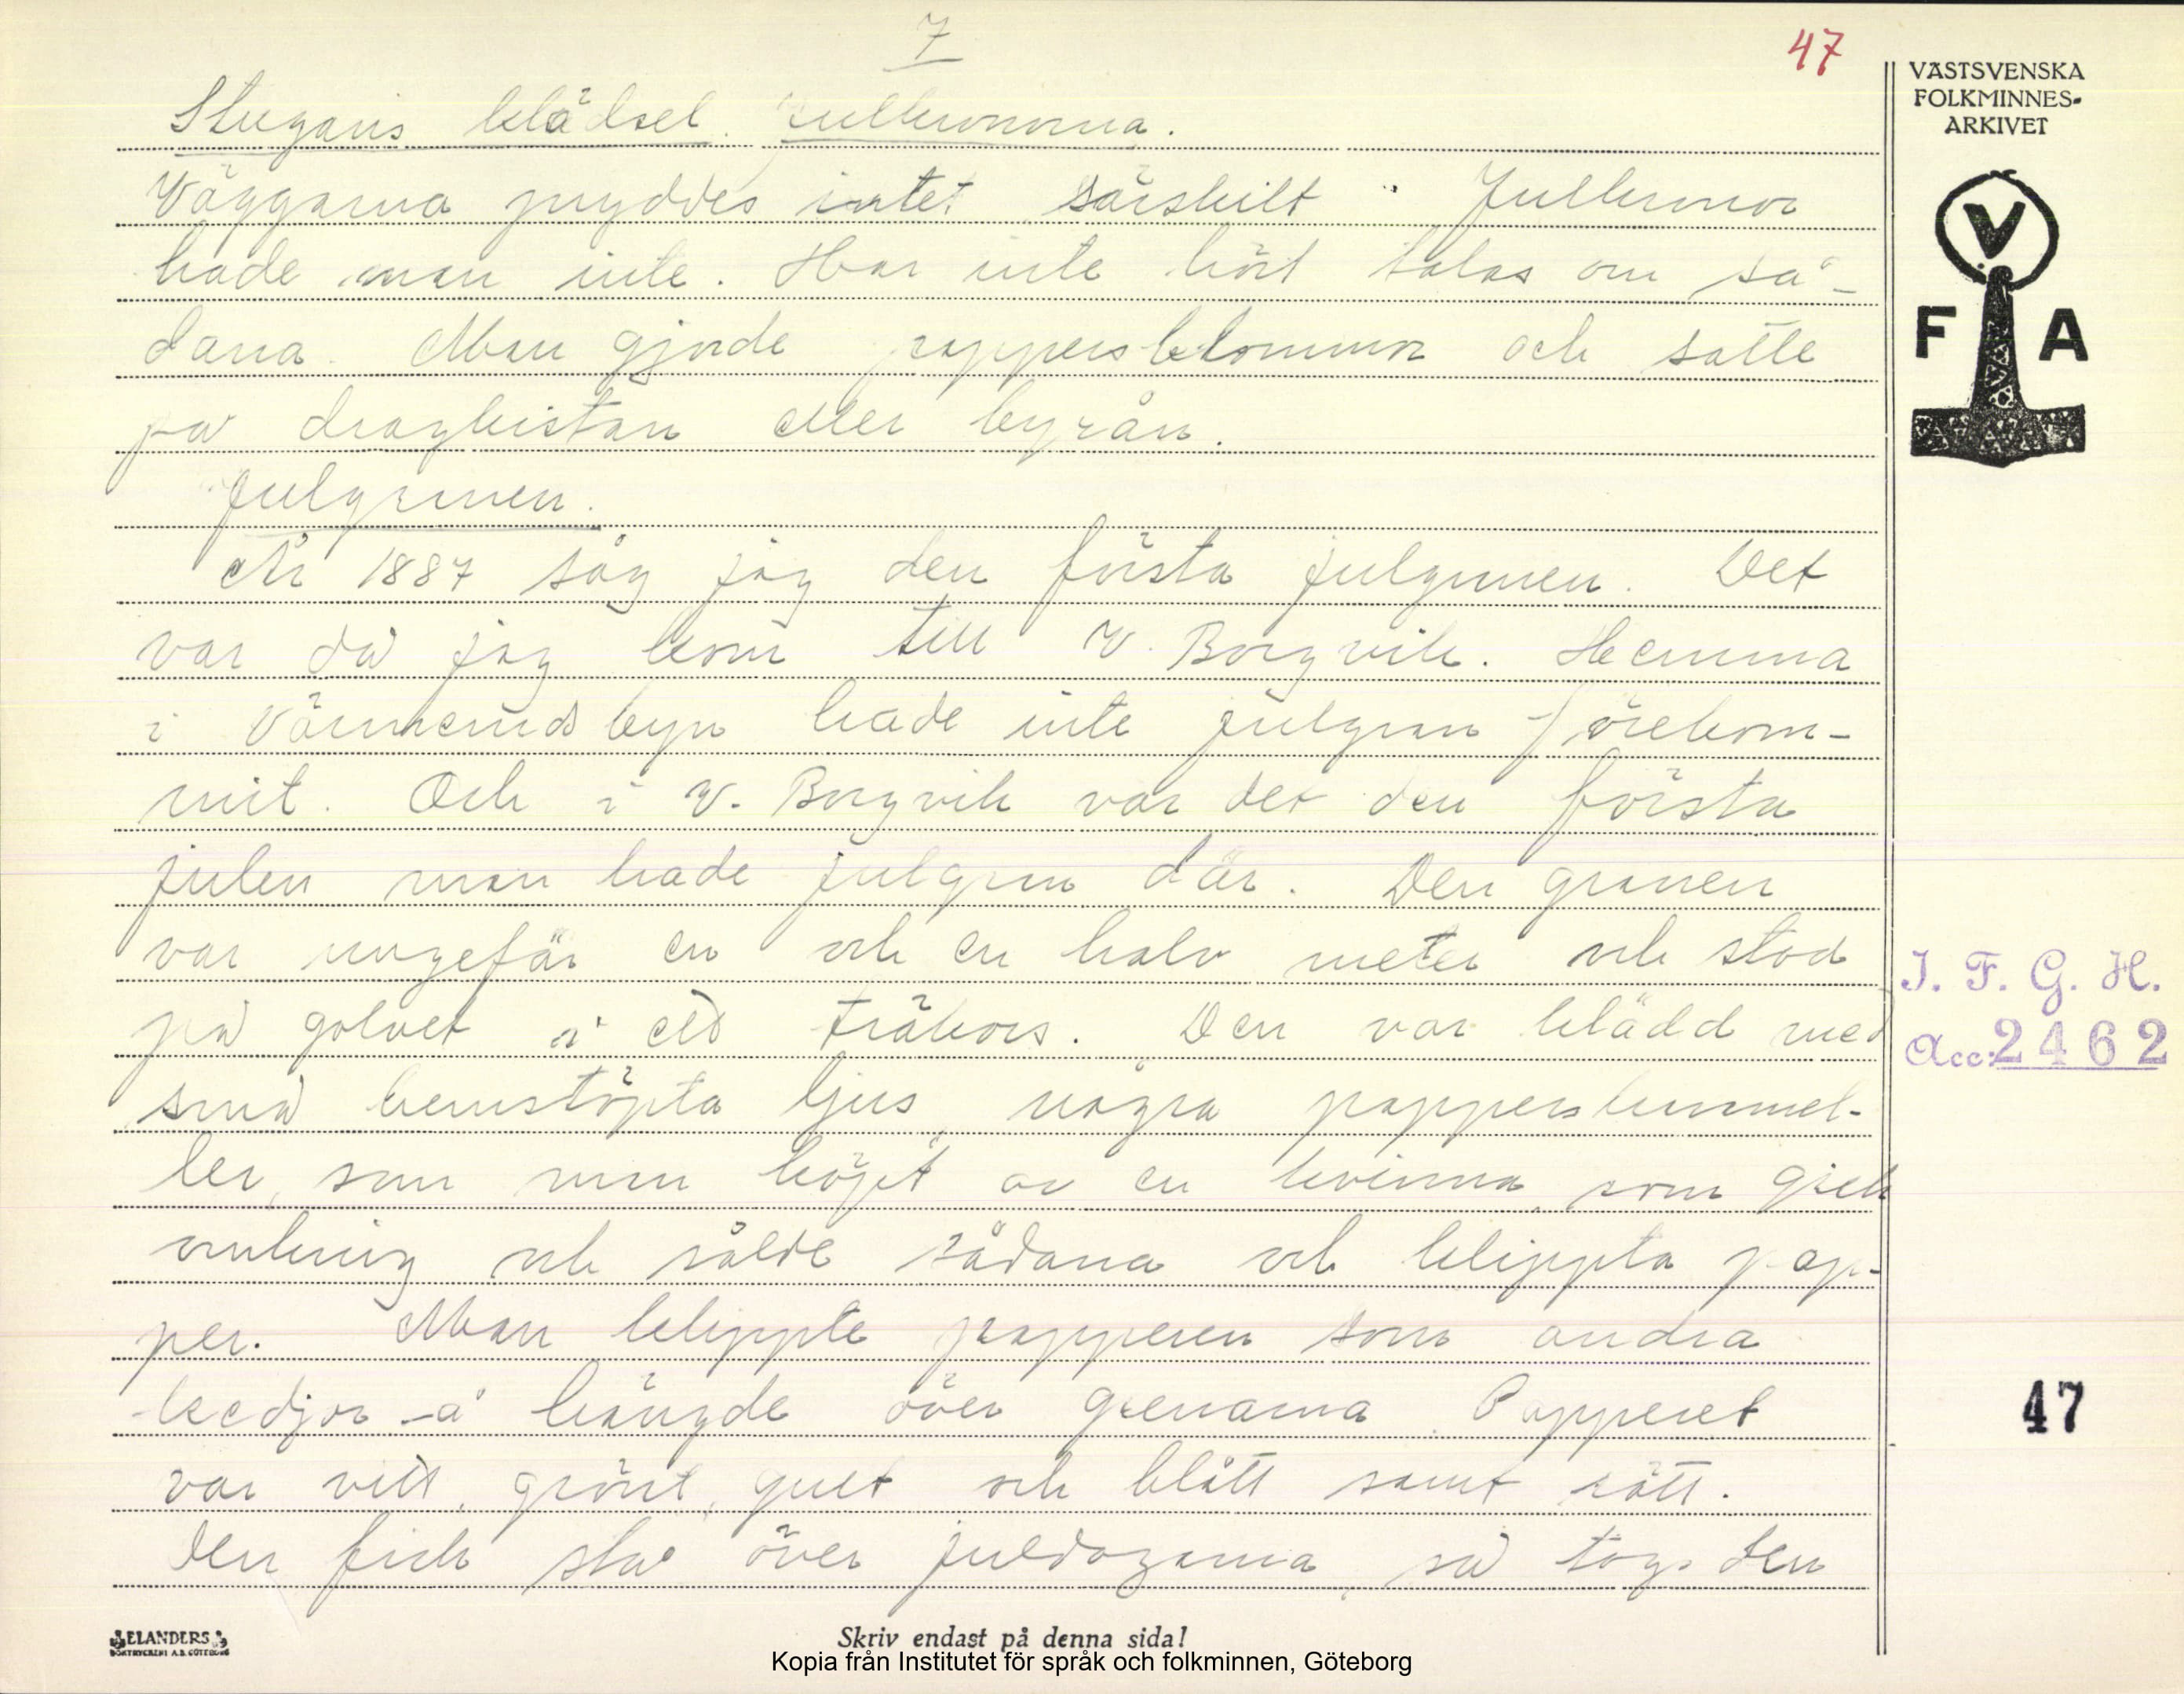 7
47
Stugans klädsel. Julkronorna.
Väggarna pryddes intet särskilt. Julkronor
hade man inte. Har inte hört talas om så-
dana. Man gjorde pappersblommor och satte
på dragkistan eller byrån.
Julgranen.
År 1887 såg jag den första julgranen. Det
var då jag kom till V. Borgvik. Hemma
i byn hade inte julgran förekom-
mit. Och i V. Borgvik var det den första
julen man hade julgran där. Den granen
var ungefär en och en halv meter och stod
på golvet i ett träkors. Den var klädd med
små hemstöpta ljus, några papperskarmel-
ler, som man köpt av en kvinna, som gick
omkring och sålde sådana och klippta pap-
per. Man klippte papperen som andra
kedjor å hängde över grenarna. Papperet
var vitt, grönt, gult och blått samt rött.
Den fick stå över juldagarna, så togs den
VÄSTSVENSKA
FOLKMINNES-
ARKIVET
V
F A
I. F. G. H.
Acc: 2462
47
ELANDERS
BOKTRYCKERI A.B. GÖTEBORG
Skriv endast på denna sida!
Kopia från Institutet för språk och folkminnen, Göteborg